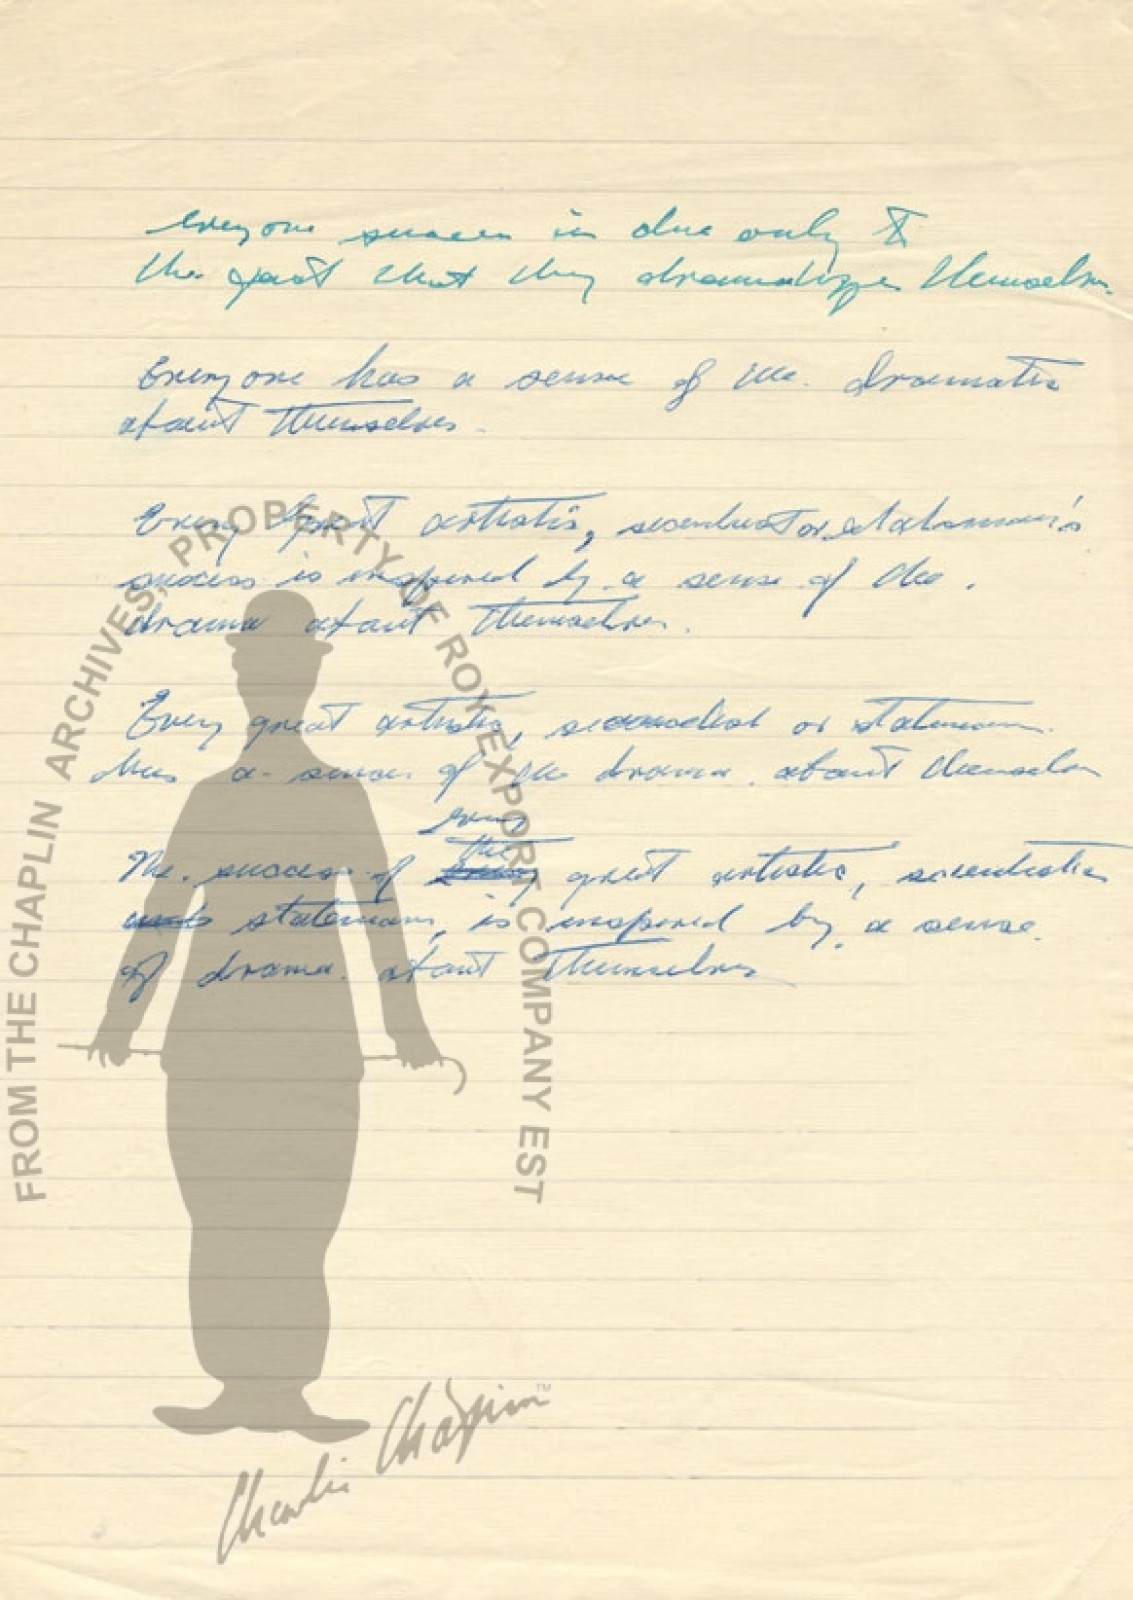 everyone success is due only to
the fact that they dramatizes themselves.
Everyone has a sense of the dramatic
about themselves.
Every great artistic, scientist or statesman's
success is inspired by a sense of the
drama about themselves.
Every great artistic, or statesman
has a sense of the drama about themselves
every
the
The success of every great artistic, scientistic
statesman, is inspired by a sense
of drama about themselves
FROM THE CHAPLIN ARCHIVES, PROPERTY OF ROY EXPORT COMPANY EST
Charlie Chaplin TM